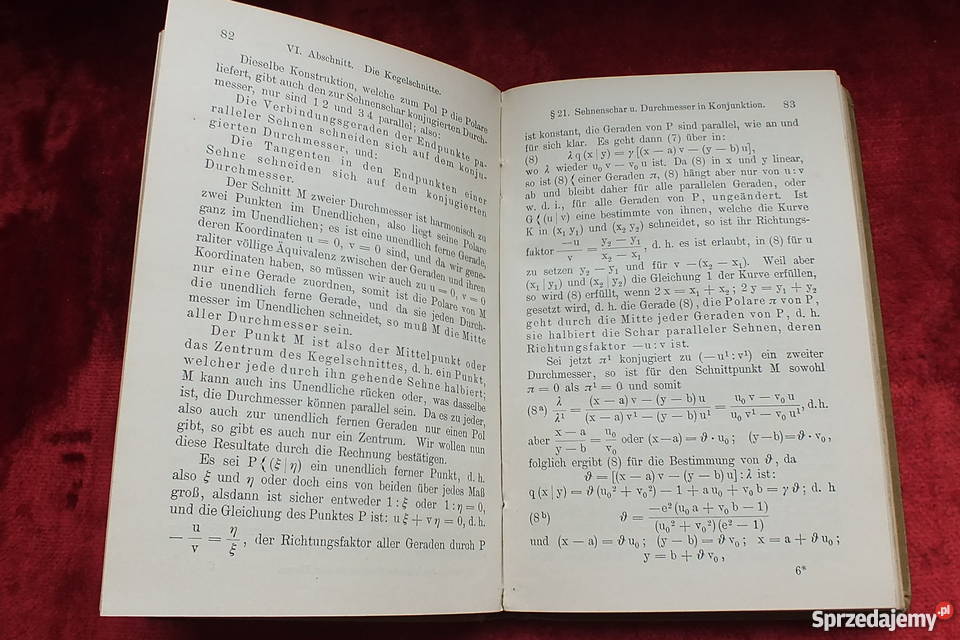 82
VI. Abschnitt. Die Kegelschnitte.
Dieselbe Konstruktion, welche zum Pol P die Polare
liefert, gibt auch den zur Sehnenschar konjugierten Durch-
messer, nur sind 1 2 und 3 4 parallel; also:
Die Verbindungsgeraden der Endpunkte pa-
ralleler Sehnen schneiden sich auf dem konju-
gierten Durchmesser, und:
Die Tangenten in den Endpunkten einer
Sehne schneiden sich auf dem konjugierten
Durchmesser.
Der Schnitt M zweier Durchmesser ist harmonisch zu
zwei Punkten im Unendlichen, also liegt seine Polare
ganz im Unendlichen; es ist eine unendlich ferne Gerade,
deren Koordinaten u = 0, v = 0 sind, und da wir gene-
raliter völlige Äquivalenz zwischen der Geraden und ihren
Koordinaten haben, so müssen wir auch zu u = 0, v = 0
nur eine Gerade zuordnen, somit ist die Polare von M
die unendlich ferne Gerade, und da sie jeden Durch-
messer im Unendlichen schneidet, so muß M die Mitte
aller Durchmesser sein.
Der Punkt M ist also der Mittelpunkt oder
das Zentrum des Kegelschnittes, d. h. ein Punkt,
welcher jede durch ihn gehende Sehne halbiert;
M kann auch ins Unendliche rücken oder, was dasselbe
ist, die Durchmesser können parallel sein. Da es zu jeder,
also auch zur unendlich fernen Geraden nur einen Pol
gibt, so gibt es auch nur ein Zentrum. Wir wollen nun
diese Resultate durch die Rechnung bestätigen.
Es sei P ⟨ (ξ | η) ein unendlich ferner Punkt, d. h.
also ξ und η oder doch eins von beiden über jedes Maß
groß, alsdann ist sicher entweder 1 : ξ oder 1 : η = 0,
und die Gleichung des Punktes P ist: u ξ + v η = 0, d. h.
− u/v = η/ξ, der Richtungsfaktor aller Geraden durch P
§ 21. Sehnenschar u. Durchmesser in Konjunktion. 83
ist konstant, die Geraden von P sind parallel, wie an und
für sich klar. Es geht dann (7) über in:
(8) λ q (x | y) = γ [(x − a) v − (y − b) u],
wo λ wieder u₀ v − v₀ u ist. Da (8) in x und y linear,
so ist (8) ⟨ einer Geraden π, (8) hängt aber nur von u : v
ab und bleibt daher für alle parallelen Geraden, oder
w. d. i., für alle Geraden von P, ungeändert. Ist
G ⟨ (u | v) eine bestimmte von ihnen, welche die Kurve
K in (x₁ y₁) und (x₂ y₂) schneidet, so ist ihr Richtungs-
faktor −u/v = (y₂ − y₁)/(x₂ − x₁), d. h. es ist erlaubt, in (8) für u
zu setzen y₂ − y₁ und für v −(x₂ − x₁). Weil aber
(x₁ | y₁) und (x₂ | y₂) die Gleichung 1 der Kurve erfüllen,
so wird (8) erfüllt, wenn 2 x = x₁ + x₂; 2 y = y₁ + y₂
gesetzt wird, d. h. die Gerade (8), die Polare π von P,
geht durch die Mitte jeder Geraden von P, d. h.
sie halbiert die Schar paralleler Sehnen, deren
Richtungsfaktor −u : v ist.
Sei jetzt π¹ konjugiert zu (−u¹ : v¹) ein zweiter
Durchmesser, so ist für den Schnittpunkt M sowohl
π = 0 als π¹ = 0 und somit
(8ᵃ) λ/λ¹ = ((x − a) v − (y − b) u)/((x − a) v¹ − (y − b) u¹) = (u₀ v − v₀ u)/(u₀ v¹ − v₀ u¹), d. h.
aber (x − a)/(y − b) = u₀/v₀ oder (x − a) = ϑ · u₀; (y − b) = ϑ · v₀,
folglich ergibt (8) für die Bestimmung von ϑ, da
ϑ = [(x − a) v − (y − b) u] : λ ist:
q (x | y) = ϑ (u₀² + v₀²) − 1 + a u₀ + v₀ b = γ ϑ; d. h
(8ᵇ) ϑ = −e² (u₀ a + v₀ b − 1)/((u₀² + v₀²) (e² − 1))
und (x − a) = ϑ u₀; (y − b) = ϑ v₀; x = a + ϑ u₀;
y = b + ϑ v₀,
6*
Sprzedajemy.pl